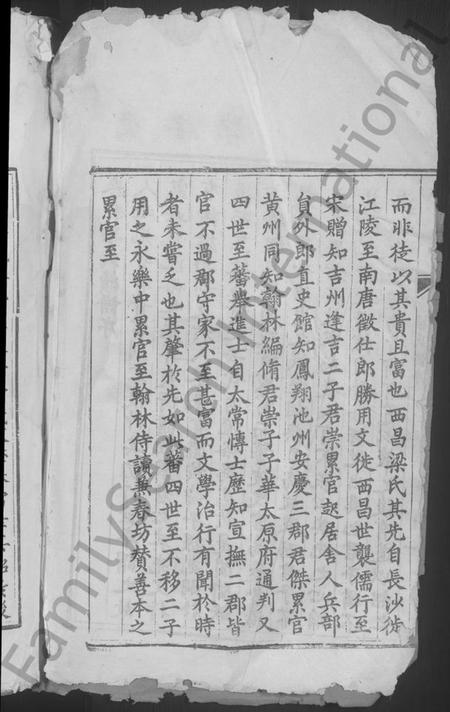 而非徒以其貴且富也西昌梁氏其先自長沙徙
江陵至南唐徵仕郎勝用文徙西昌世襲儒行至
宋贈知吉州逢吉二子君崇累官起居舍人兵部
員外郎直史館知鳳翔池州安慶三郡君傑累官
黄州同知翰林編脩君崇子子華太原府通判又
四世至蕃舉進士自太常博士歷知宣撫二郡皆
官不過郡守家不至甚富而文學治行有聞於時
者未嘗乏也其肇於先如此蕃四世至不移二子
用之永樂中累官至翰林侍讀兼春坊賛善本之
累官至
FamilySearch International